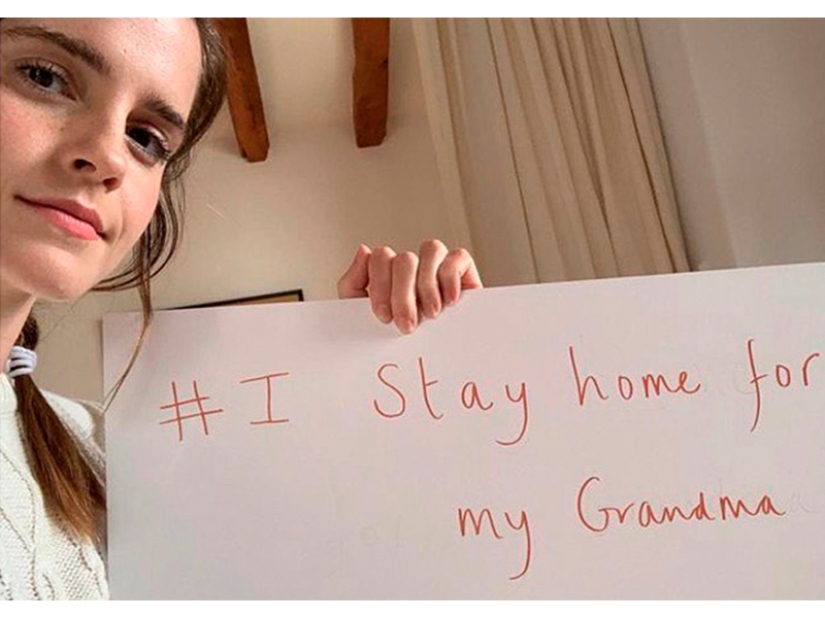 #I Stay home for
my Grandma